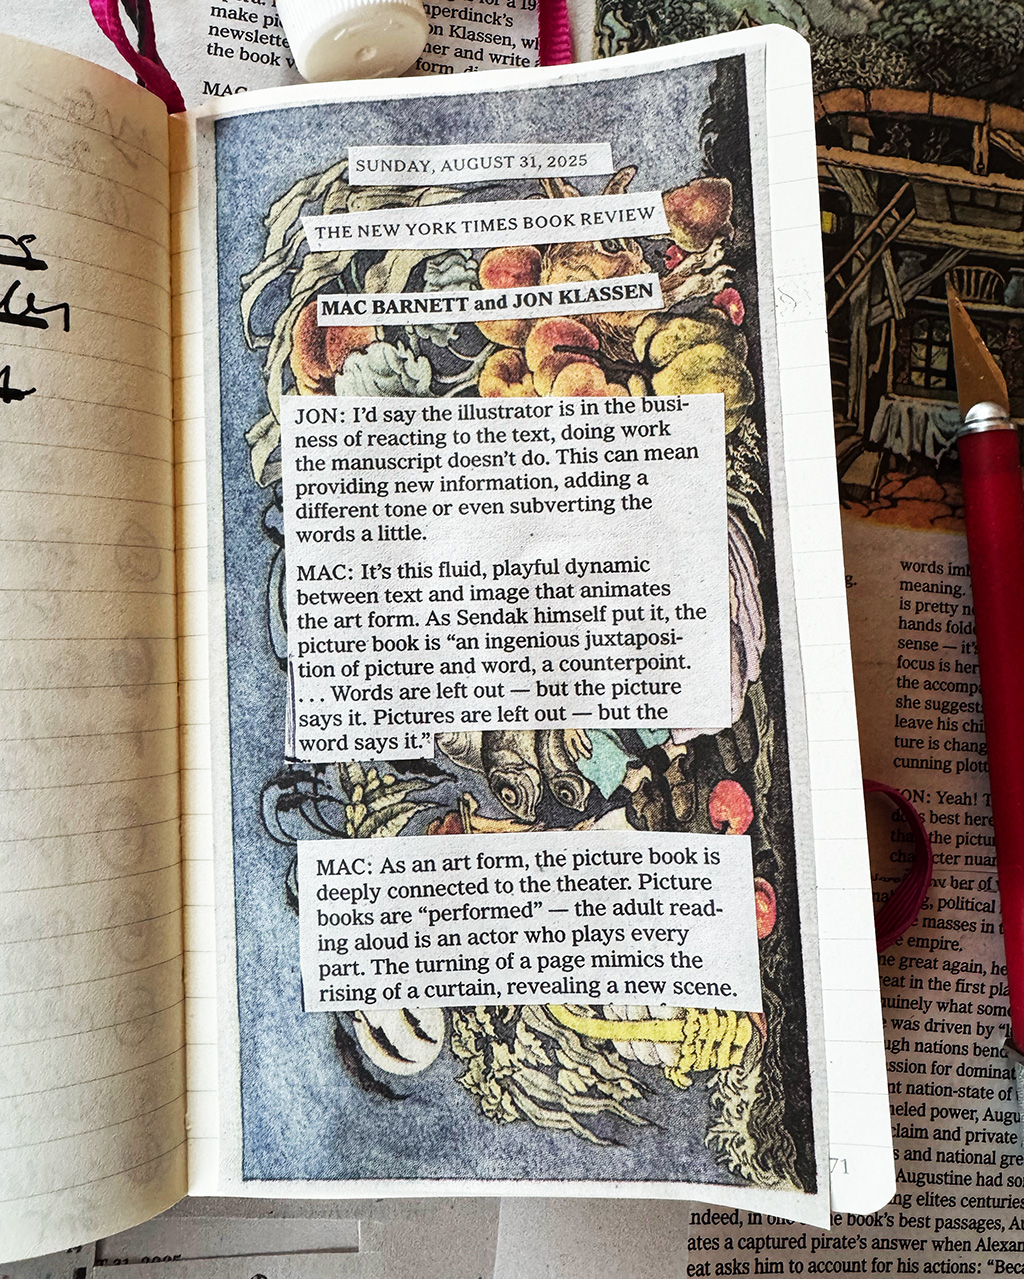 make
newslette
the book
MAC
perdinck's
on Klassen, wh
her and write a
form,
SUNDAY, AUGUST 31, 2025
THE NEW YORK TIMES BOOK REVIEW
MAC BARNETT and JON KLASSEN
JON: I'd say the illustrator is in the busi-
ness of reacting to the text, doing work
the manuscript doesn't do. This can mean
providing new information, adding a
different tone or even subverting the
words a little.
MAC: It's this fluid, playful dynamic
between text and image that animates
the art form. As Sendak himself put it, the
picture book is “an ingenious juxtaposi-
tion of picture and word, a counterpoint.
. . . Words are left out — but the picture
says it. Pictures are left out — but the
word says it.”
MAC: As an art form, the picture book is
deeply connected to the theater. Picture
books are “performed” — the adult read-
ing aloud is an actor who plays every
part. The turning of a page mimics the
rising of a curtain, revealing a new scene.
71
words iml
meaning.
is pretty n
hands fold
sense — it's
focus is her
the accomp
she suggest
leave his chi
ture is chang
cunning plott
JON: Yeah! T
s best here
the pictur
cter nuan
ber of
g, political
masses in t
e empire.
ne great again, he
eat in the first pla
uinely what som
was driven by “l
ugh nations bend
ssion for dominat
nt nation-state of
neled power, Augu
claim and private
s and national gre
Augustine had so
ng elites centuries
ndeed, in one book's best passages, Au
ates a captured pirate's answer when Alexan
eat asks him to account for his actions: “Beca